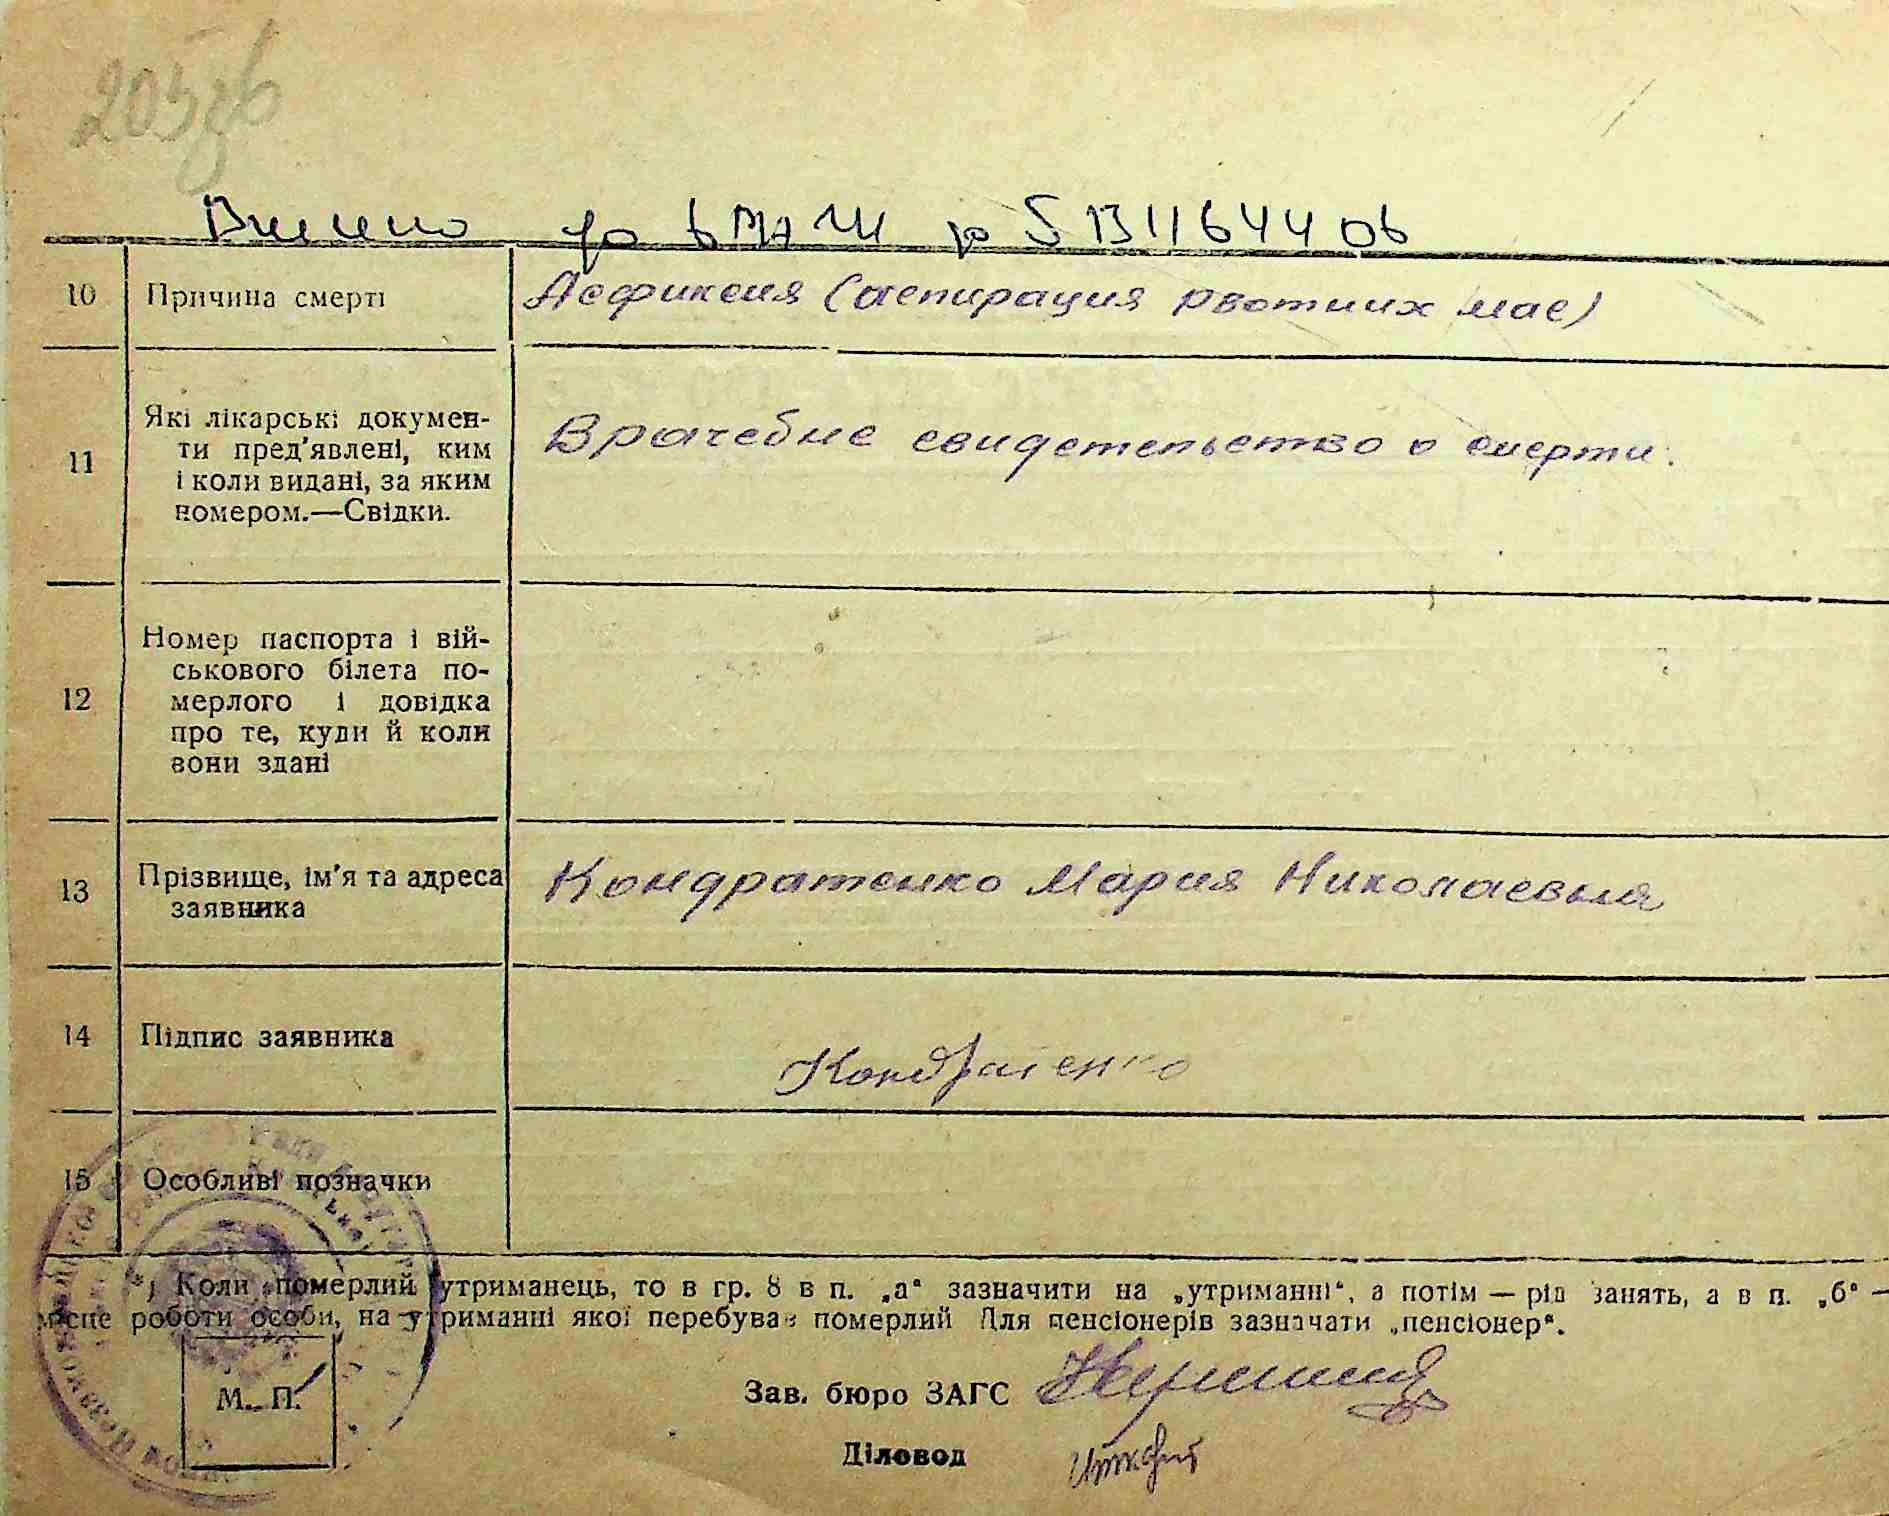 Внесено до
10 Причина смерті Асфиксия (аспирация рвотних мас)
11 Які лікарські докумен-
ти пред'явлені, ким
і коли видані, за яким
номером.—Свідки.
Врачебне свидетельство о смерти.
12 Номер паспорта і вій-
ськового білета по-
мерлого і довідка
про те, куди й коли
вони здані
13 Прізвище, ім'я та адреса
заявника
Кондратенко Мария Николаевна
14 Підпис заявника
Кондратенко
15 Особливі позначки
*) Коли померлий утриманець, то в гр. 8 в п. „а“ зазначити на „утриманні“, а потім — рід занять, а в п. „б“ —
місце роботи особи, на утриманні якої перебував померлий Для пенсіонерів зазначати „пенсіонер“.
М. П.
Зав. бюро ЗАГС
Діловод